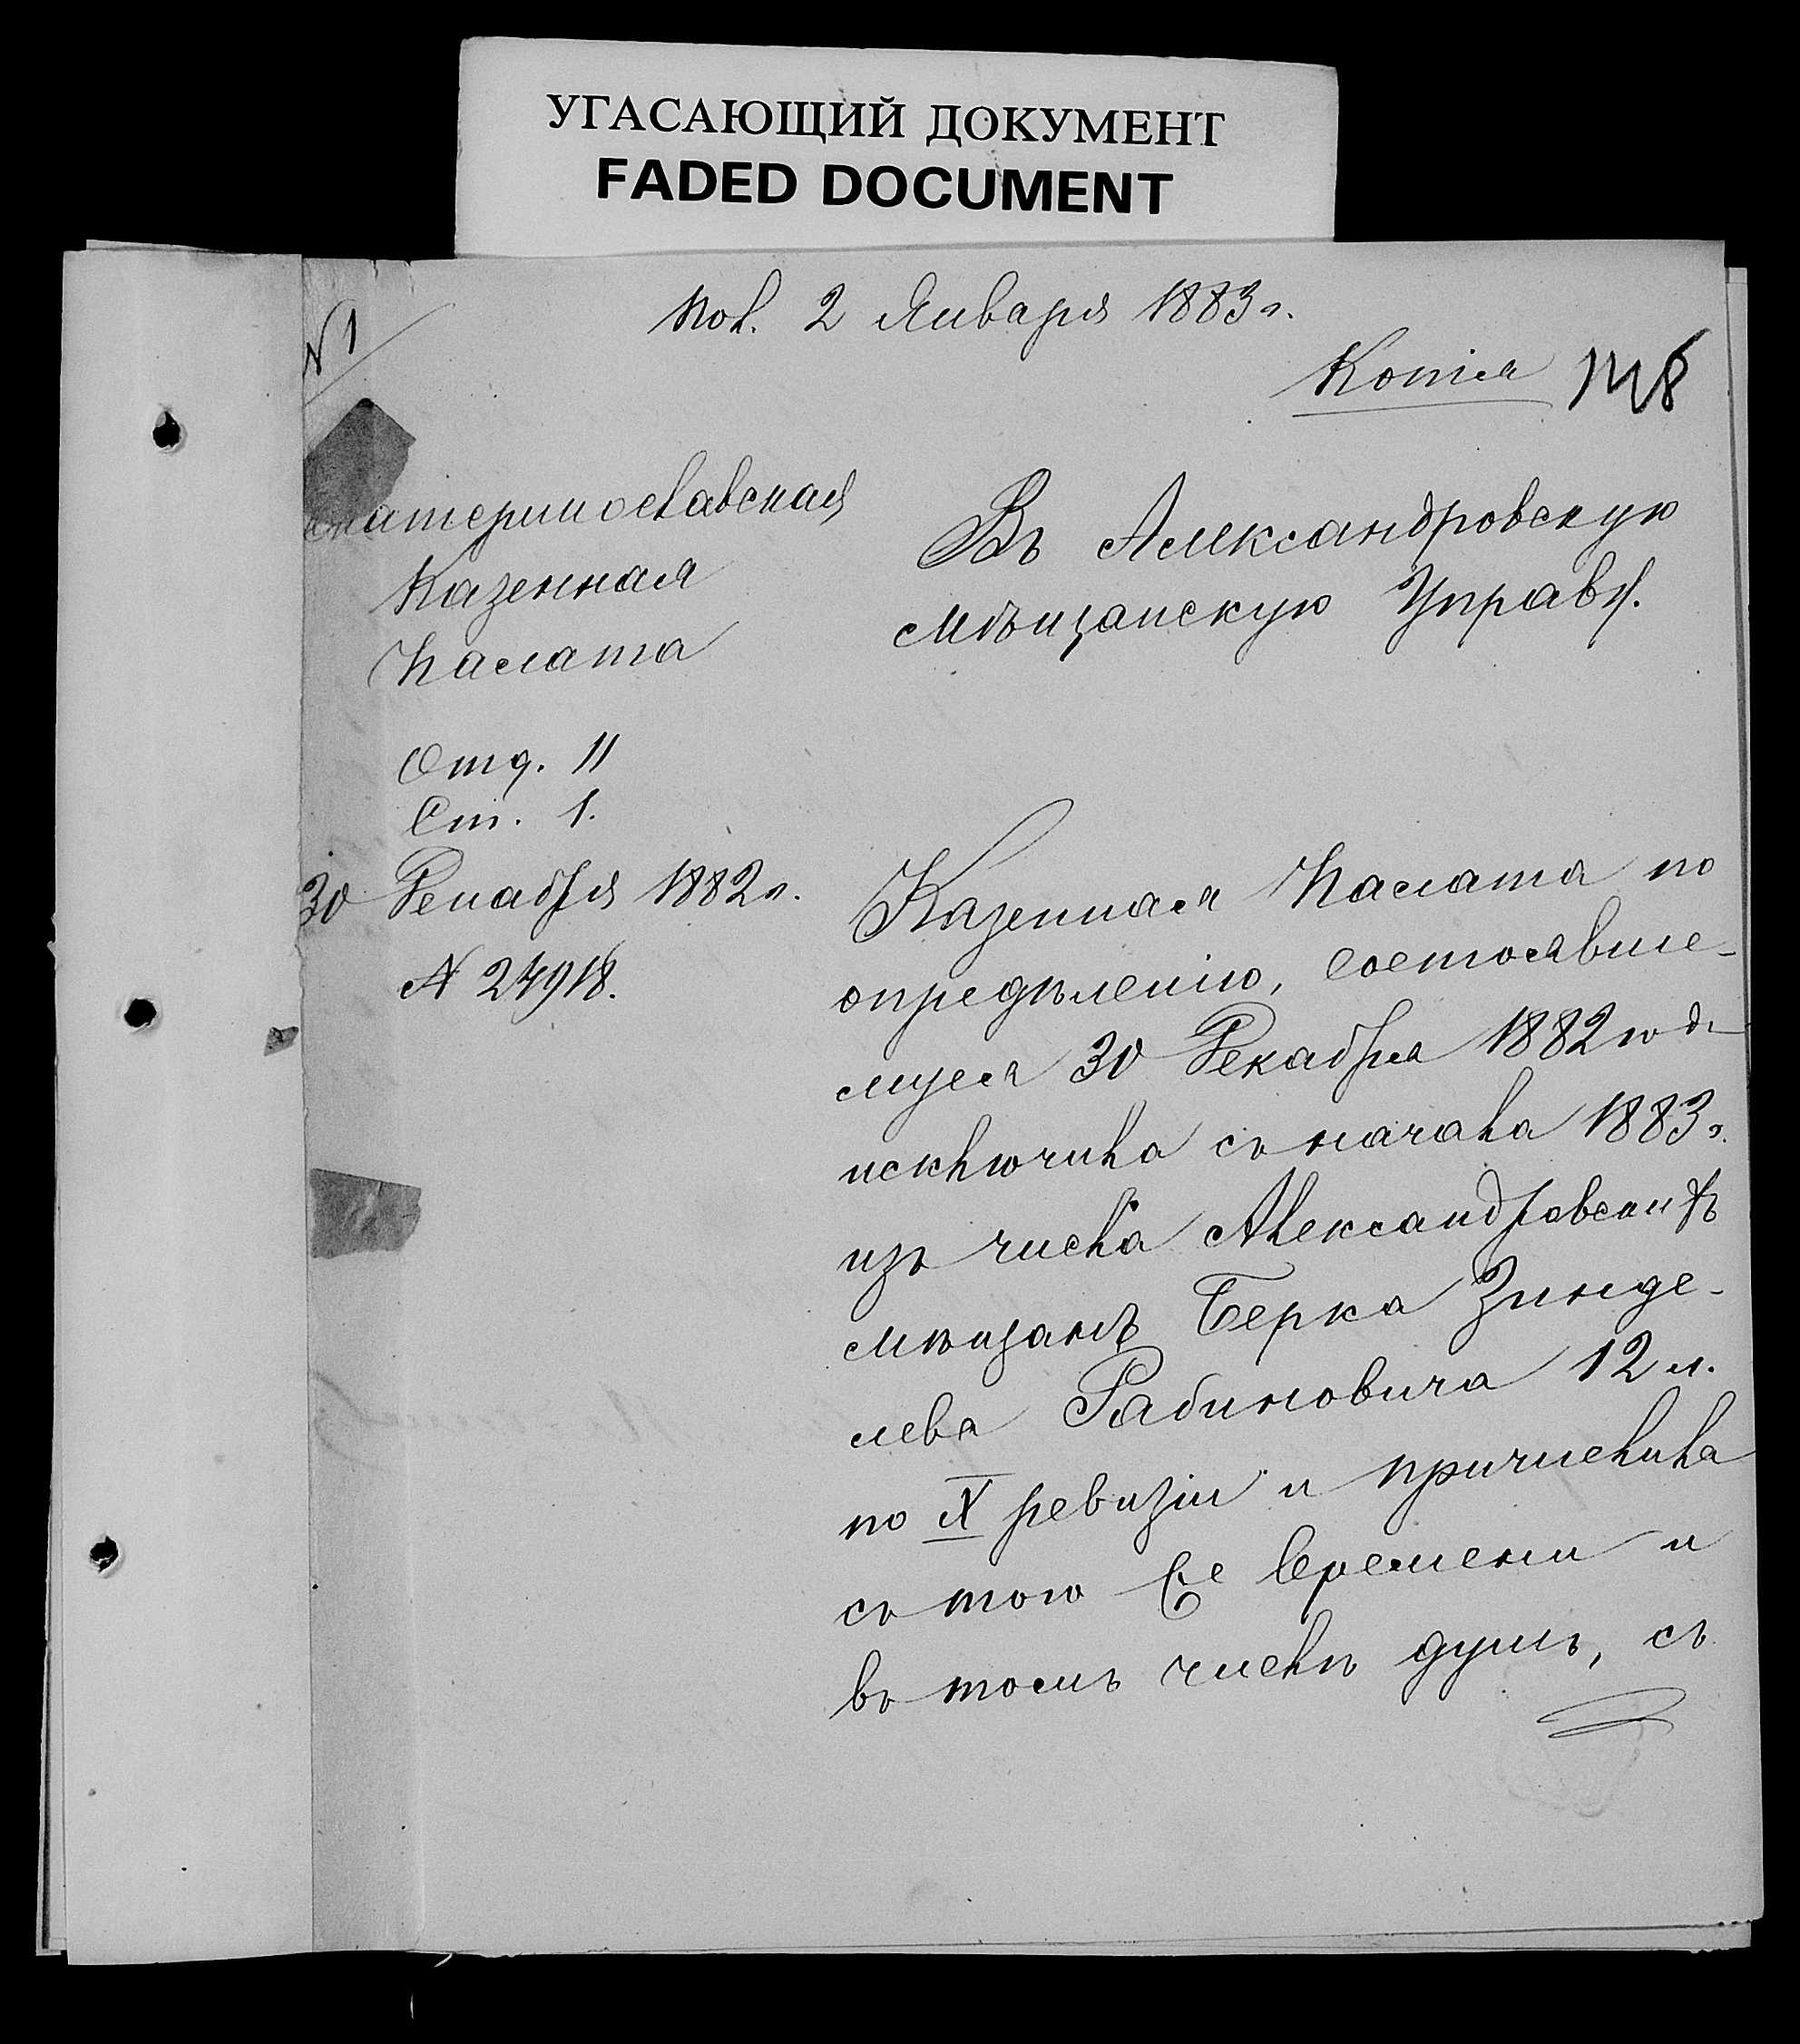 УГАСАЮЩИЙ ДОКУМЕНТ
FADED DOCUMENT
№ 1
Пол. 2 Января 1883 г.
Копія
катеринославская
Казенная
Палата
Отд. II
Ст. 1.
30 Декабря 1882 г.
№ 24918.
Въ Александровскую
Мѣщанскую Управу.
Казенная Палата по
опредѣленію, состоявше-
муся 30 Декабря 1882 года
исключила съ начала 1883 г.
изъ числа Александровскихъ
мѣщанъ Берка Зинде-
лева Рабиновича 12 л.
по X ревизіи и причислила
съ того же времени и
въ томъ числѣ душъ, съ